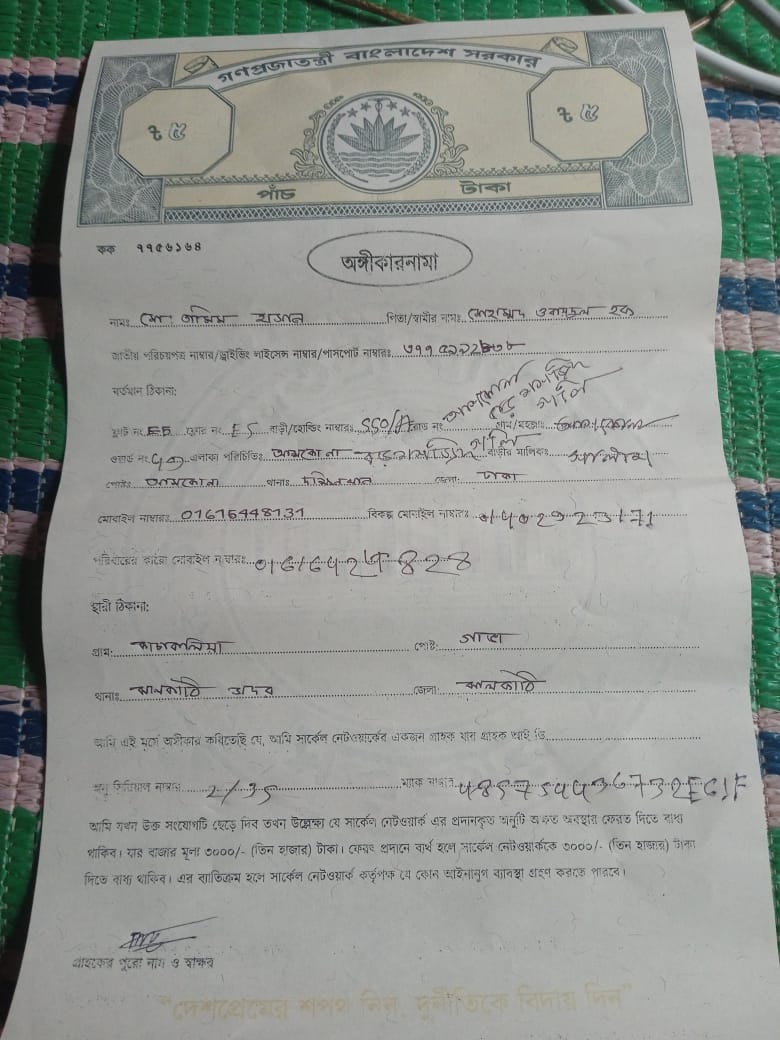 গণপ্রজাতন্ত্রী বাংলাদেশ সরকার
৳ ৫ ৳ ৫
পাঁচ টাকা
কক ৭৭৫৬১৬৪
অঙ্গীকারনামা
নামঃ মো হাসান পিতা/স্বামীর নামঃ মোহাম্মদ হক
জাতীয় পরিচয়পত্র নাম্বার/ড্রাইভিং লাইসেন্স নাম্বার/পাসপোর্ট নাম্বারঃ
বর্তমান ঠিকানা:
ফ্ল্যাট নং ফ্লোর নং E5 বাড়ী/হোল্ডিং নাম্বারঃ রোড নং গ্রাম/মহল্লাঃ
ওয়ার্ড নং এলাকা পরিচিতিঃ আশকোনা গলি বাড়ীর মালিকঃ
পোস্টঃ আশকোনা থানাঃ দক্ষিনখান জেলাঃ ঢাকা
মোবাইল নাম্বারঃ 01616448131 বিকল্প মোবাইল নাম্বারঃ
পরিবারের কারো মোবাইল নাম্বারঃ
স্থায়ী ঠিকানা:
গ্রাম: পোষ্ট: গাভা
থানাঃ ঝালকাঠি সদর জেলা: ঝালকাঠি
আমি এই মর্মে অঙ্গীকার করিতেছি যে, আমি সার্কেল নেটওয়ার্কের একজন গ্রাহক যার গ্রাহক আই ডি
অনু সিরিয়াল নাম্বার 2/35 ম্যাক নাম্বার
আমি যখন উক্ত সংযোগটি ছেড়ে দিব তখন উল্লেখ্য যে সার্কেল নেটওয়ার্ক এর প্রদানকৃত অনুটি অক্ষত অবস্থায় ফেরত দিতে বাধ্য
থাকিব। যার বাজার মূল্য ৩০০০/- (তিন হাজার) টাকা। ফেরৎ প্রদানে ব্যর্থ হলে সার্কেল নেটওয়ার্ককে ৩০০০/- (তিন হাজার) টাকা
দিতে বাধ্য থাকিব। এর ব্যতিক্রম হলে সার্কেল নেটওয়ার্ক কর্তৃপক্ষ যে কোন আইনানুগ ব্যবস্থা গ্রহণ করতে পারবে।
গ্রাহকের পুরো নাম ও স্বাক্ষর
"দেশপ্রেমের শপথ নিন, দুর্নীতিকে বিদায় দিন"